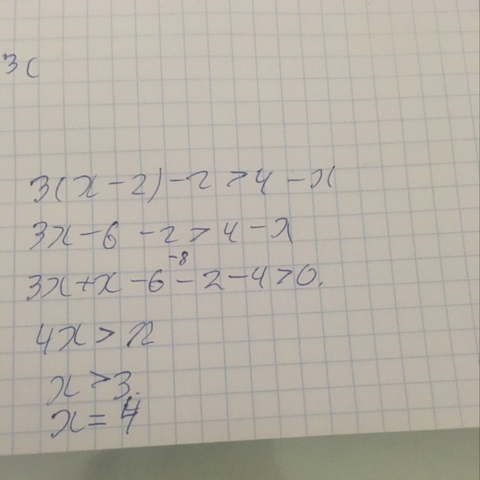 3(
3(x-2)-2>4-x
3x-6-2>4-x
-8
3x+x-6-2-4>0.
4x>12
x>3.
x=4